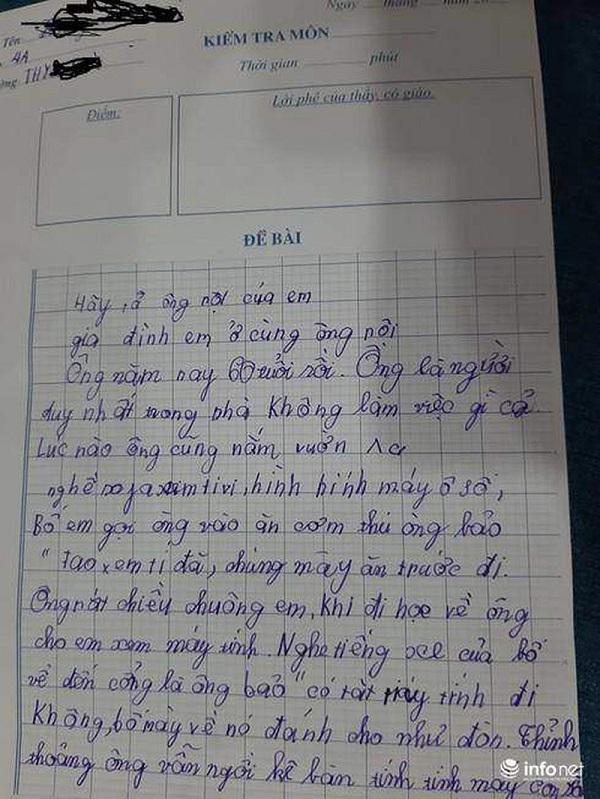 Ngày tháng năm 20
Tên
4A
KIỂM TRA MÔN
THY
Thời gian phút
Điểm:
Lời phê của thầy, cô giáo.
ĐỀ BÀI
Hãy tả ông nội của em
gia đình em ở cùng ông nội
Ông năm nay 60 tuổi rồi. Ông là người
duy nhất trong nhà không làm việc gì cả.
Lúc nào ông cũng nằm vườn
nghế xem tivi, hình máy ô số,
Bố em gọi ông vào ăn cơm thì ông bảo
"Tao xem tí đã, chúng mày ăn trước đi.
Ông rất chiều chuộng em, Khi đi học về ông
cho em xem máy tính. Nghe tiếng xe của bố
về đến cổng là ông bảo "có tắt máy tính đi
Không, bố mày về nó đánh cho như đòn. Thỉnh
thoảng ông vẫn ngồi kê bàn tính tính mấy con
infonet